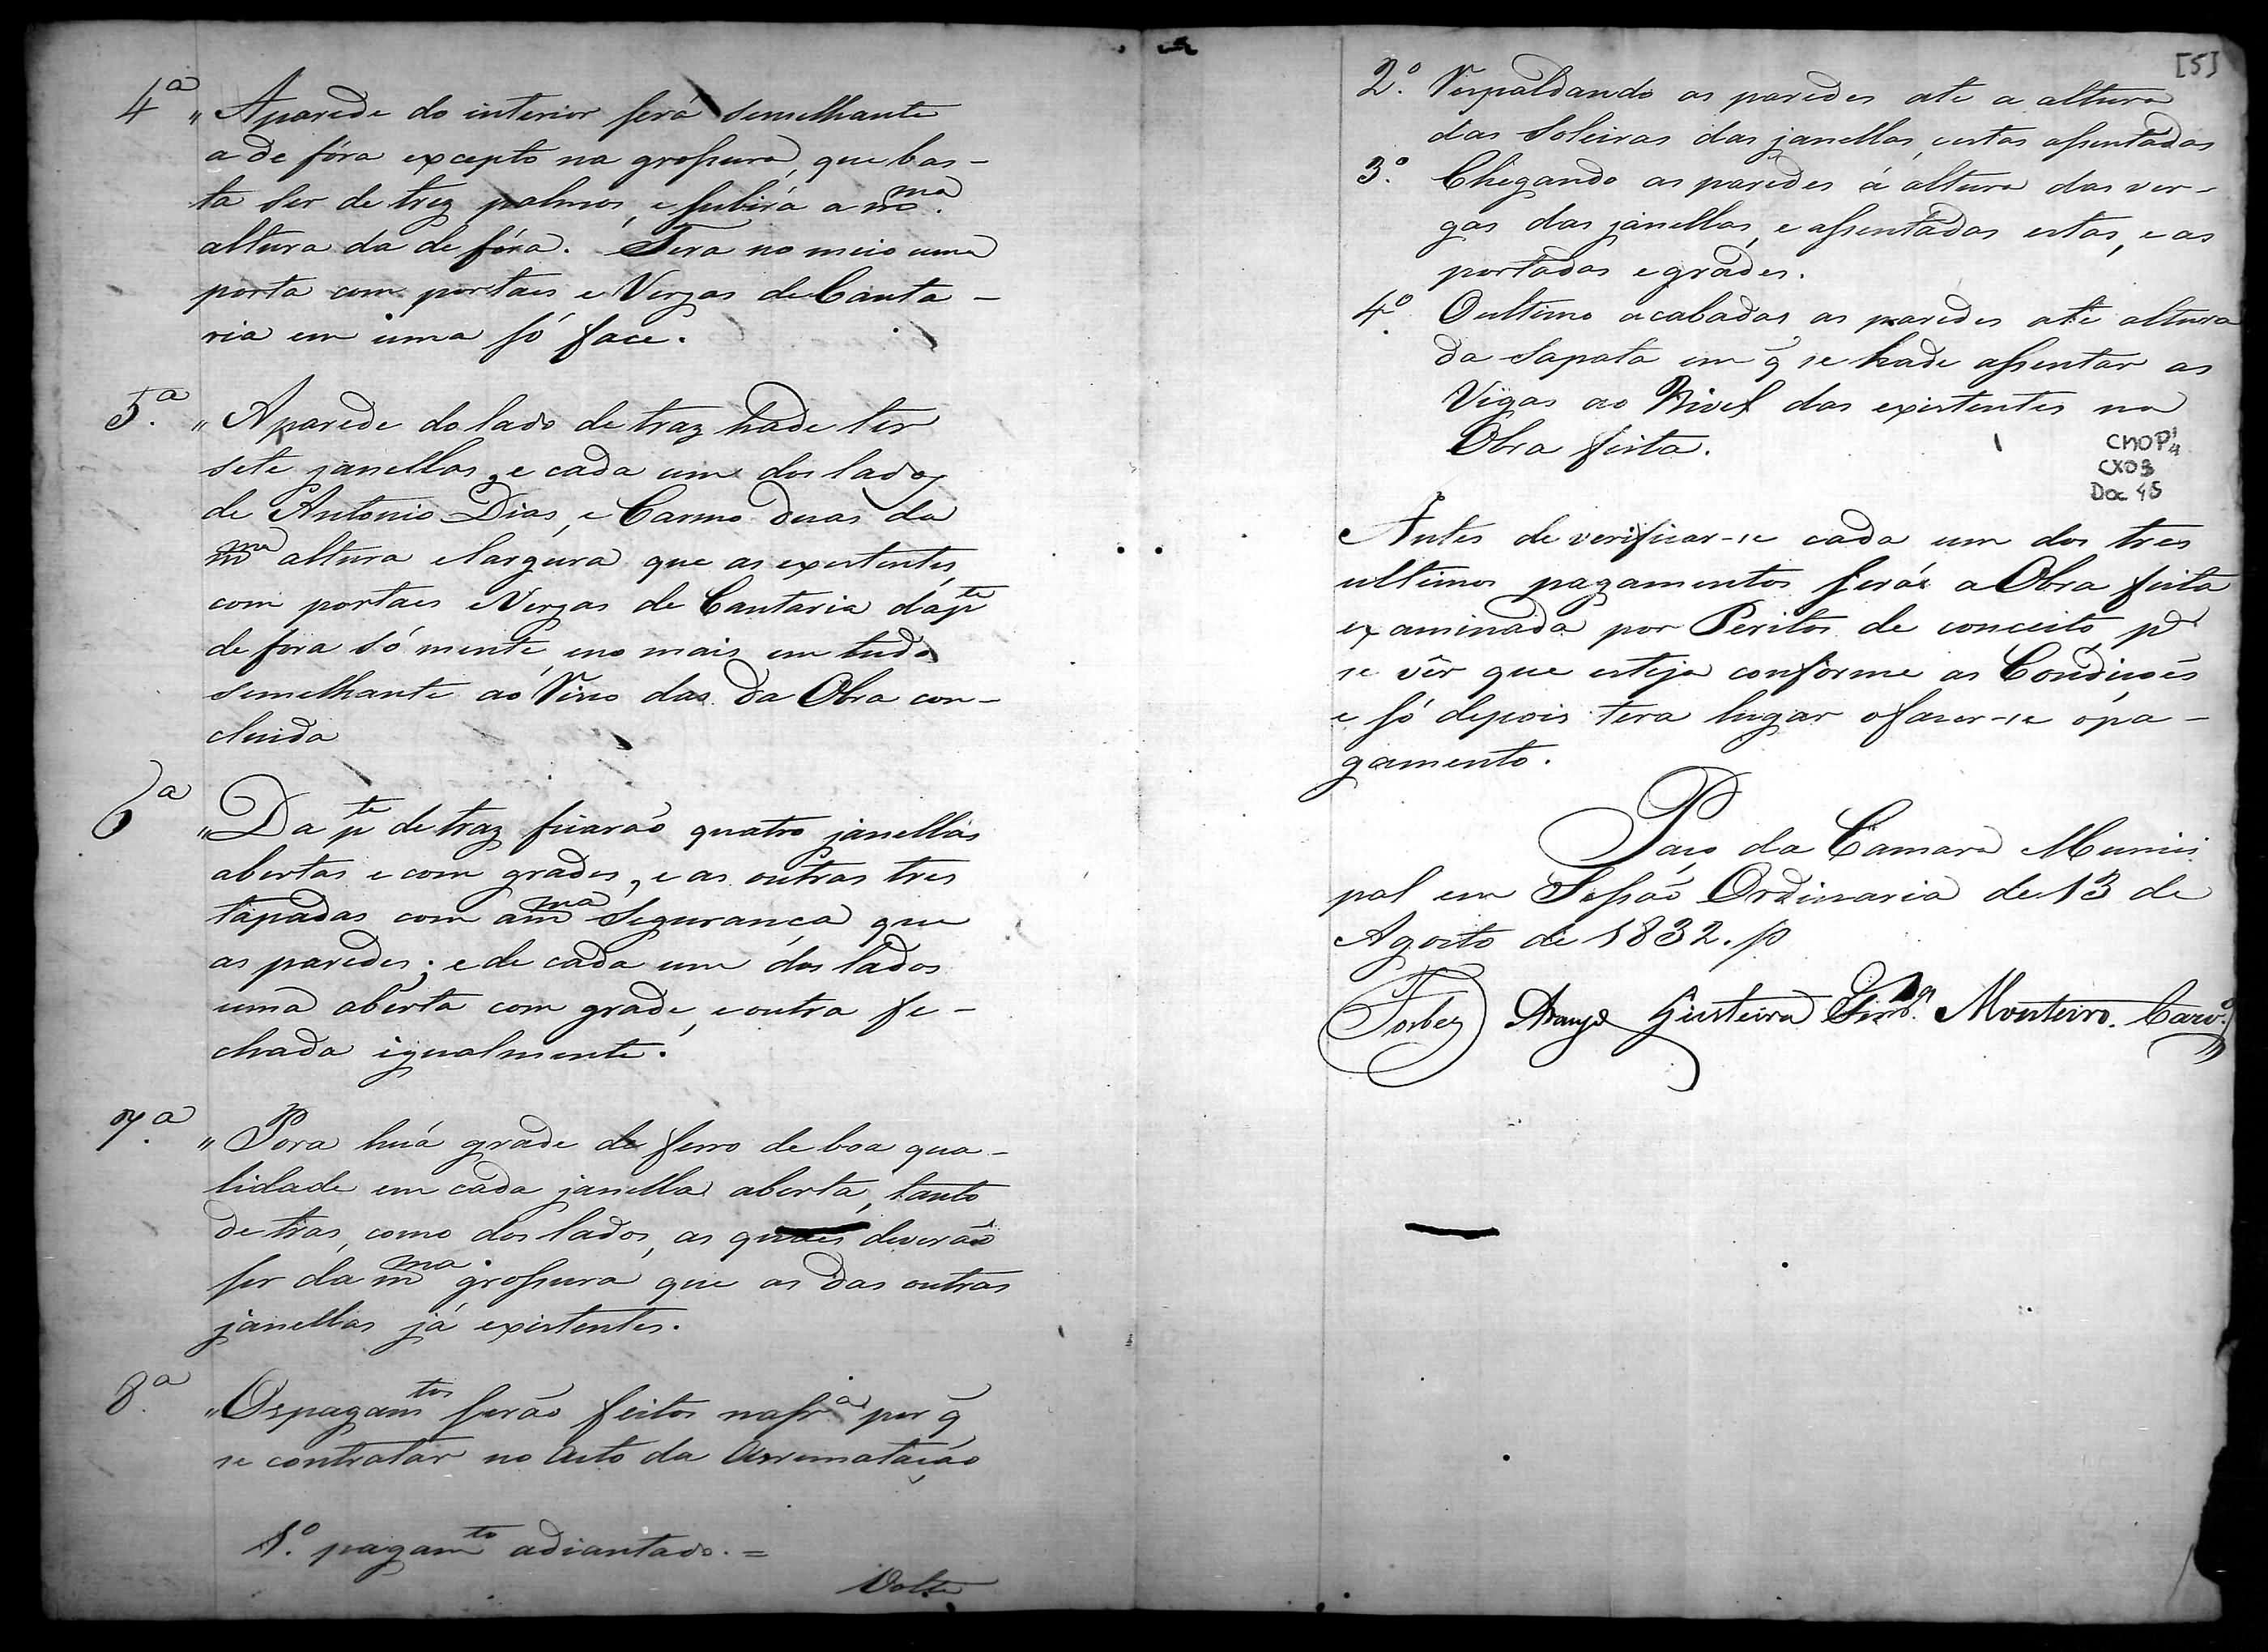 4ª " A parede do interior será semelhante
a de fóra excepto na grossura, que bas-
ta ser de trez palmos, e subirá a m.ma
altura da de fóra. Tera no meio uma
porta com portaes e Vergas de Canta-
ria em uma só face.
5.ª " A parede do lado de traz hade ter
sete janellas, e cada um dos lados
de Antonio Dias, e Carmo duas da
mma altura e largura que as existentes,
com portaes e Vergas de Cantaria da pte
de fora só mente, e no mais em tudo
semelhante ao Vivo das da Obra con-
cluida
6ª " Da pte de traz ficarão quatro janellas
abertas e com grades, e as outras tres
tapadas com a mma segurança que
as paredes; e de cada um dos lados
uma aberta com grade, e outra fe-
chada igualmente.
7.ª " Pora huã grade de ferro de boa qua-
lidade em cada janella aberta, tanto
de tras, como dos lados, as quaes deverão
ser da mma grossura que as das outras
janellas já existentes.
8.ª " Os pagamtos serão feitos na fr.ª por q̃
se contratar no Auto da Arrematação
1.º pagamto adiantado. =
Volte
[5]
2.º Respaldando as paredes ate a altura
das Soleiras das janellas, estas assentadas
3.º Chegando as paredes á altura das ver-
gas das janellas, e assentadas estas, e as
portadas e grades.
4.º O ultimo acabadas as paredes até altura
da sapata em q̃ se hade assentar as
Vigas ao Nivel das existentes na
Obra feita.
CMOP
CX03
Doc 45
Antes de verificar-se cada um dos tres
ultimos pagamentos será a Obra feita
examinada por Peritos de conceito pª
se vêr que esteja conforme as Condições
e só depois tera lugar o fazer-se o pa-
gamento.
Paço da Camara Munici
pal em Sessão Ordinaria de 13 de
Agosto de 1832.
Forbes Araujo Monteiro. Carv.º